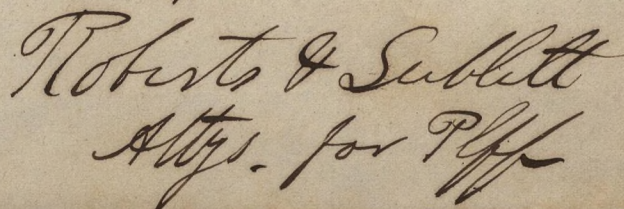 Roberts & Sublett
Attys. for Plff